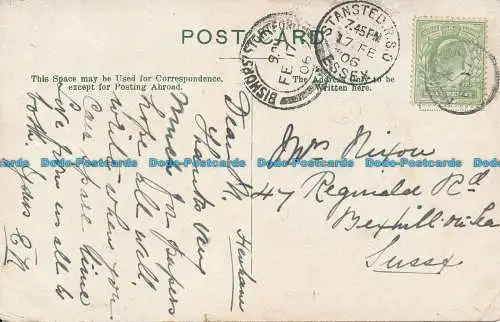 POST CARD
This Space may be Used for Correspondence,
except for Posting Abroad.
The Address Only to be
Written here.
BISHOPS STORTFORD
FE 17
06
STANSTED R.S.O
7.45 PM
17 FE
06
ESSEX
Henham
Dear
Thanks very
Much for papers
hope all well.
write when you
Can spare time
Love from us all to
both. Yours
Mrs Nixon
47 Reginald Rd
Bexhill-on-Sea
Sussex
Dodo-Postcards Dodo-Postcards Dodo-Postcards Dodo-Postcards Dodo-Postcards